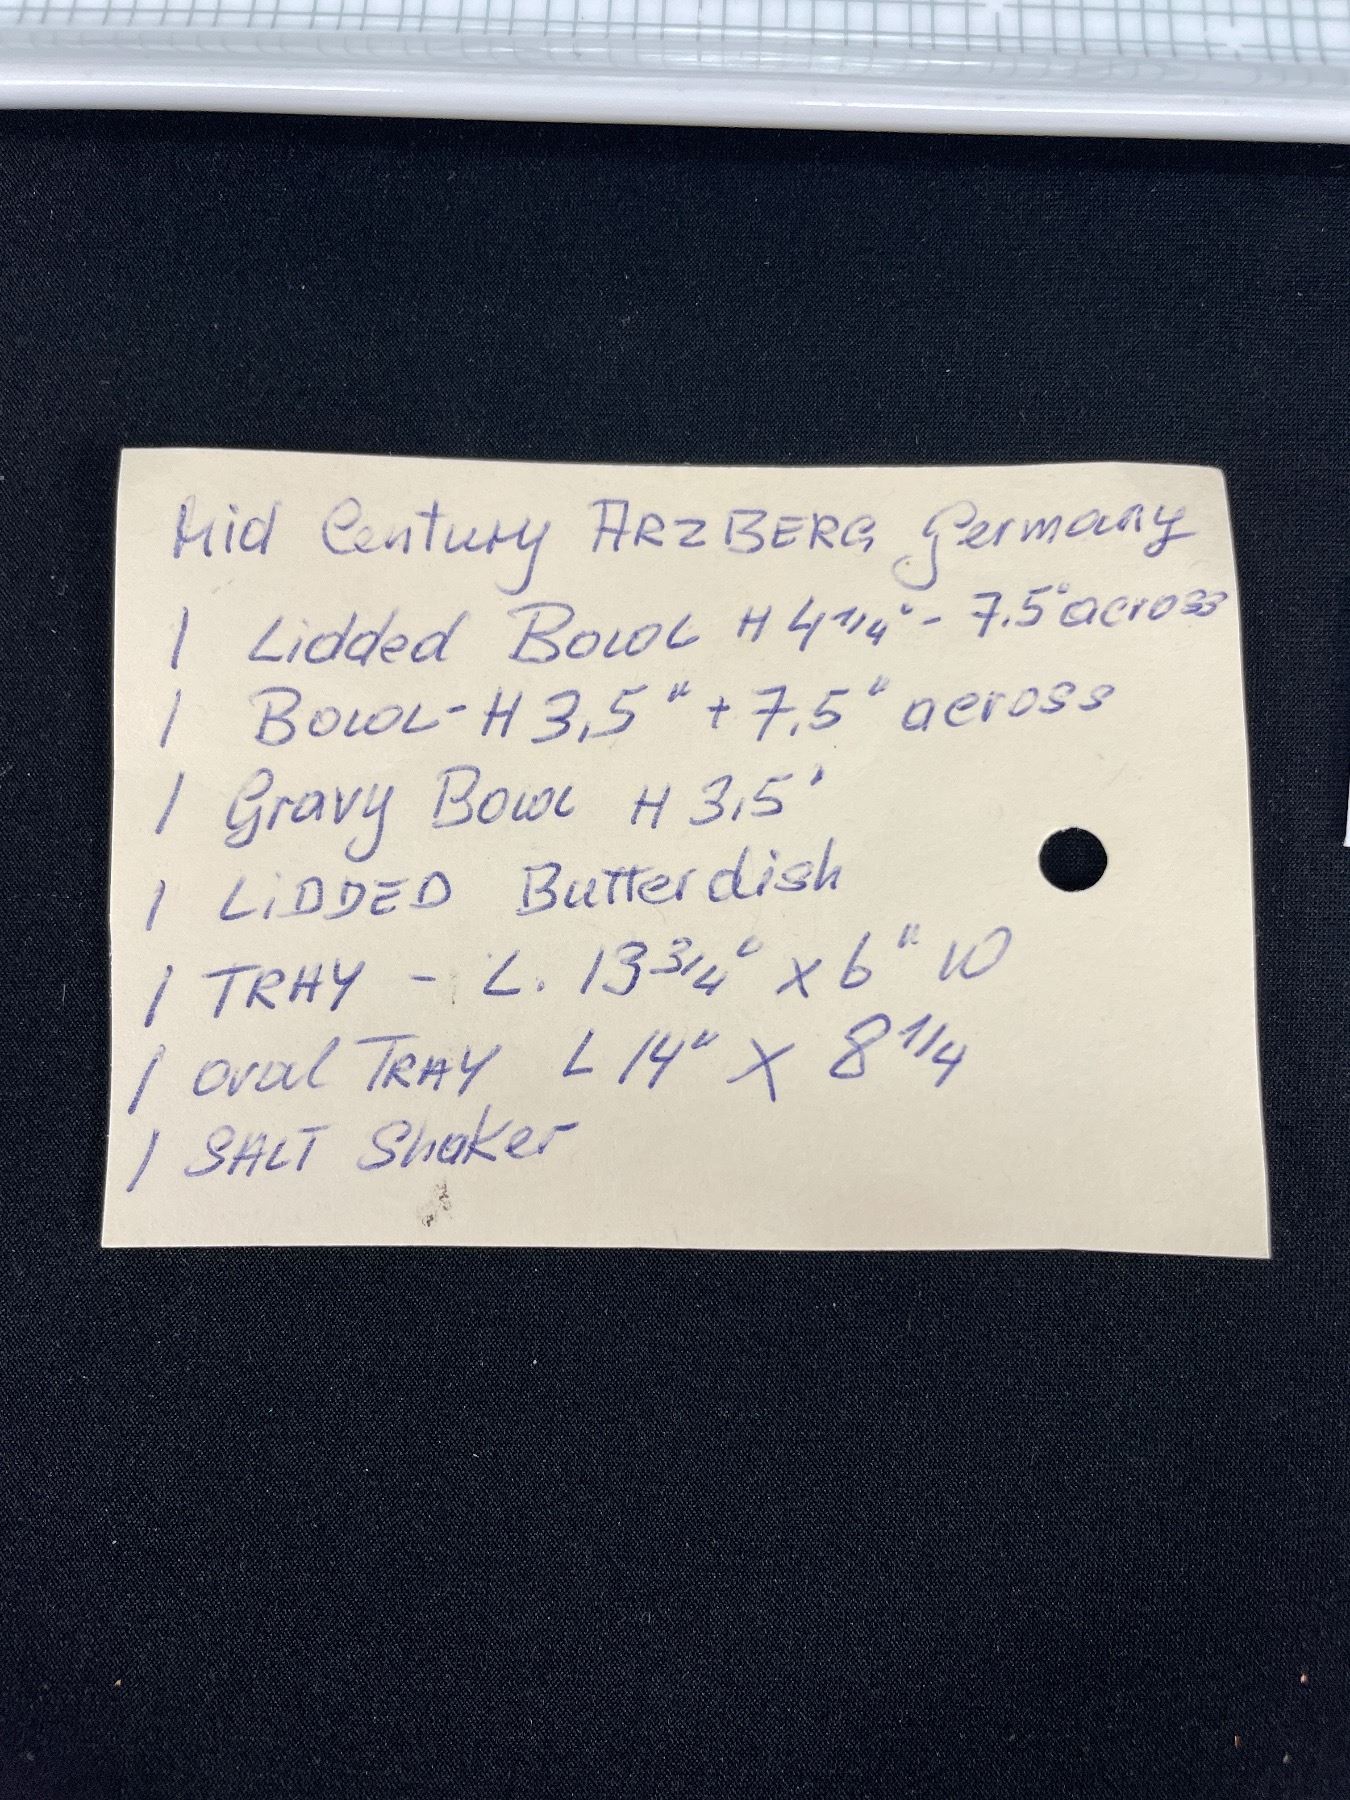 Mid Century ARZBERG Germany
1 Lidded Bowl H 4 1/4" - 7.5" across
1 Bowl - H 3,5" + 7,5" across
1 Gravy Bowl H 3,5'
1 LiDDED Butterdish
1 TRAY - L. 13 3/4" x 6" W
1 oval TRAY L 14" X 8 1/4
1 SALT Shaker